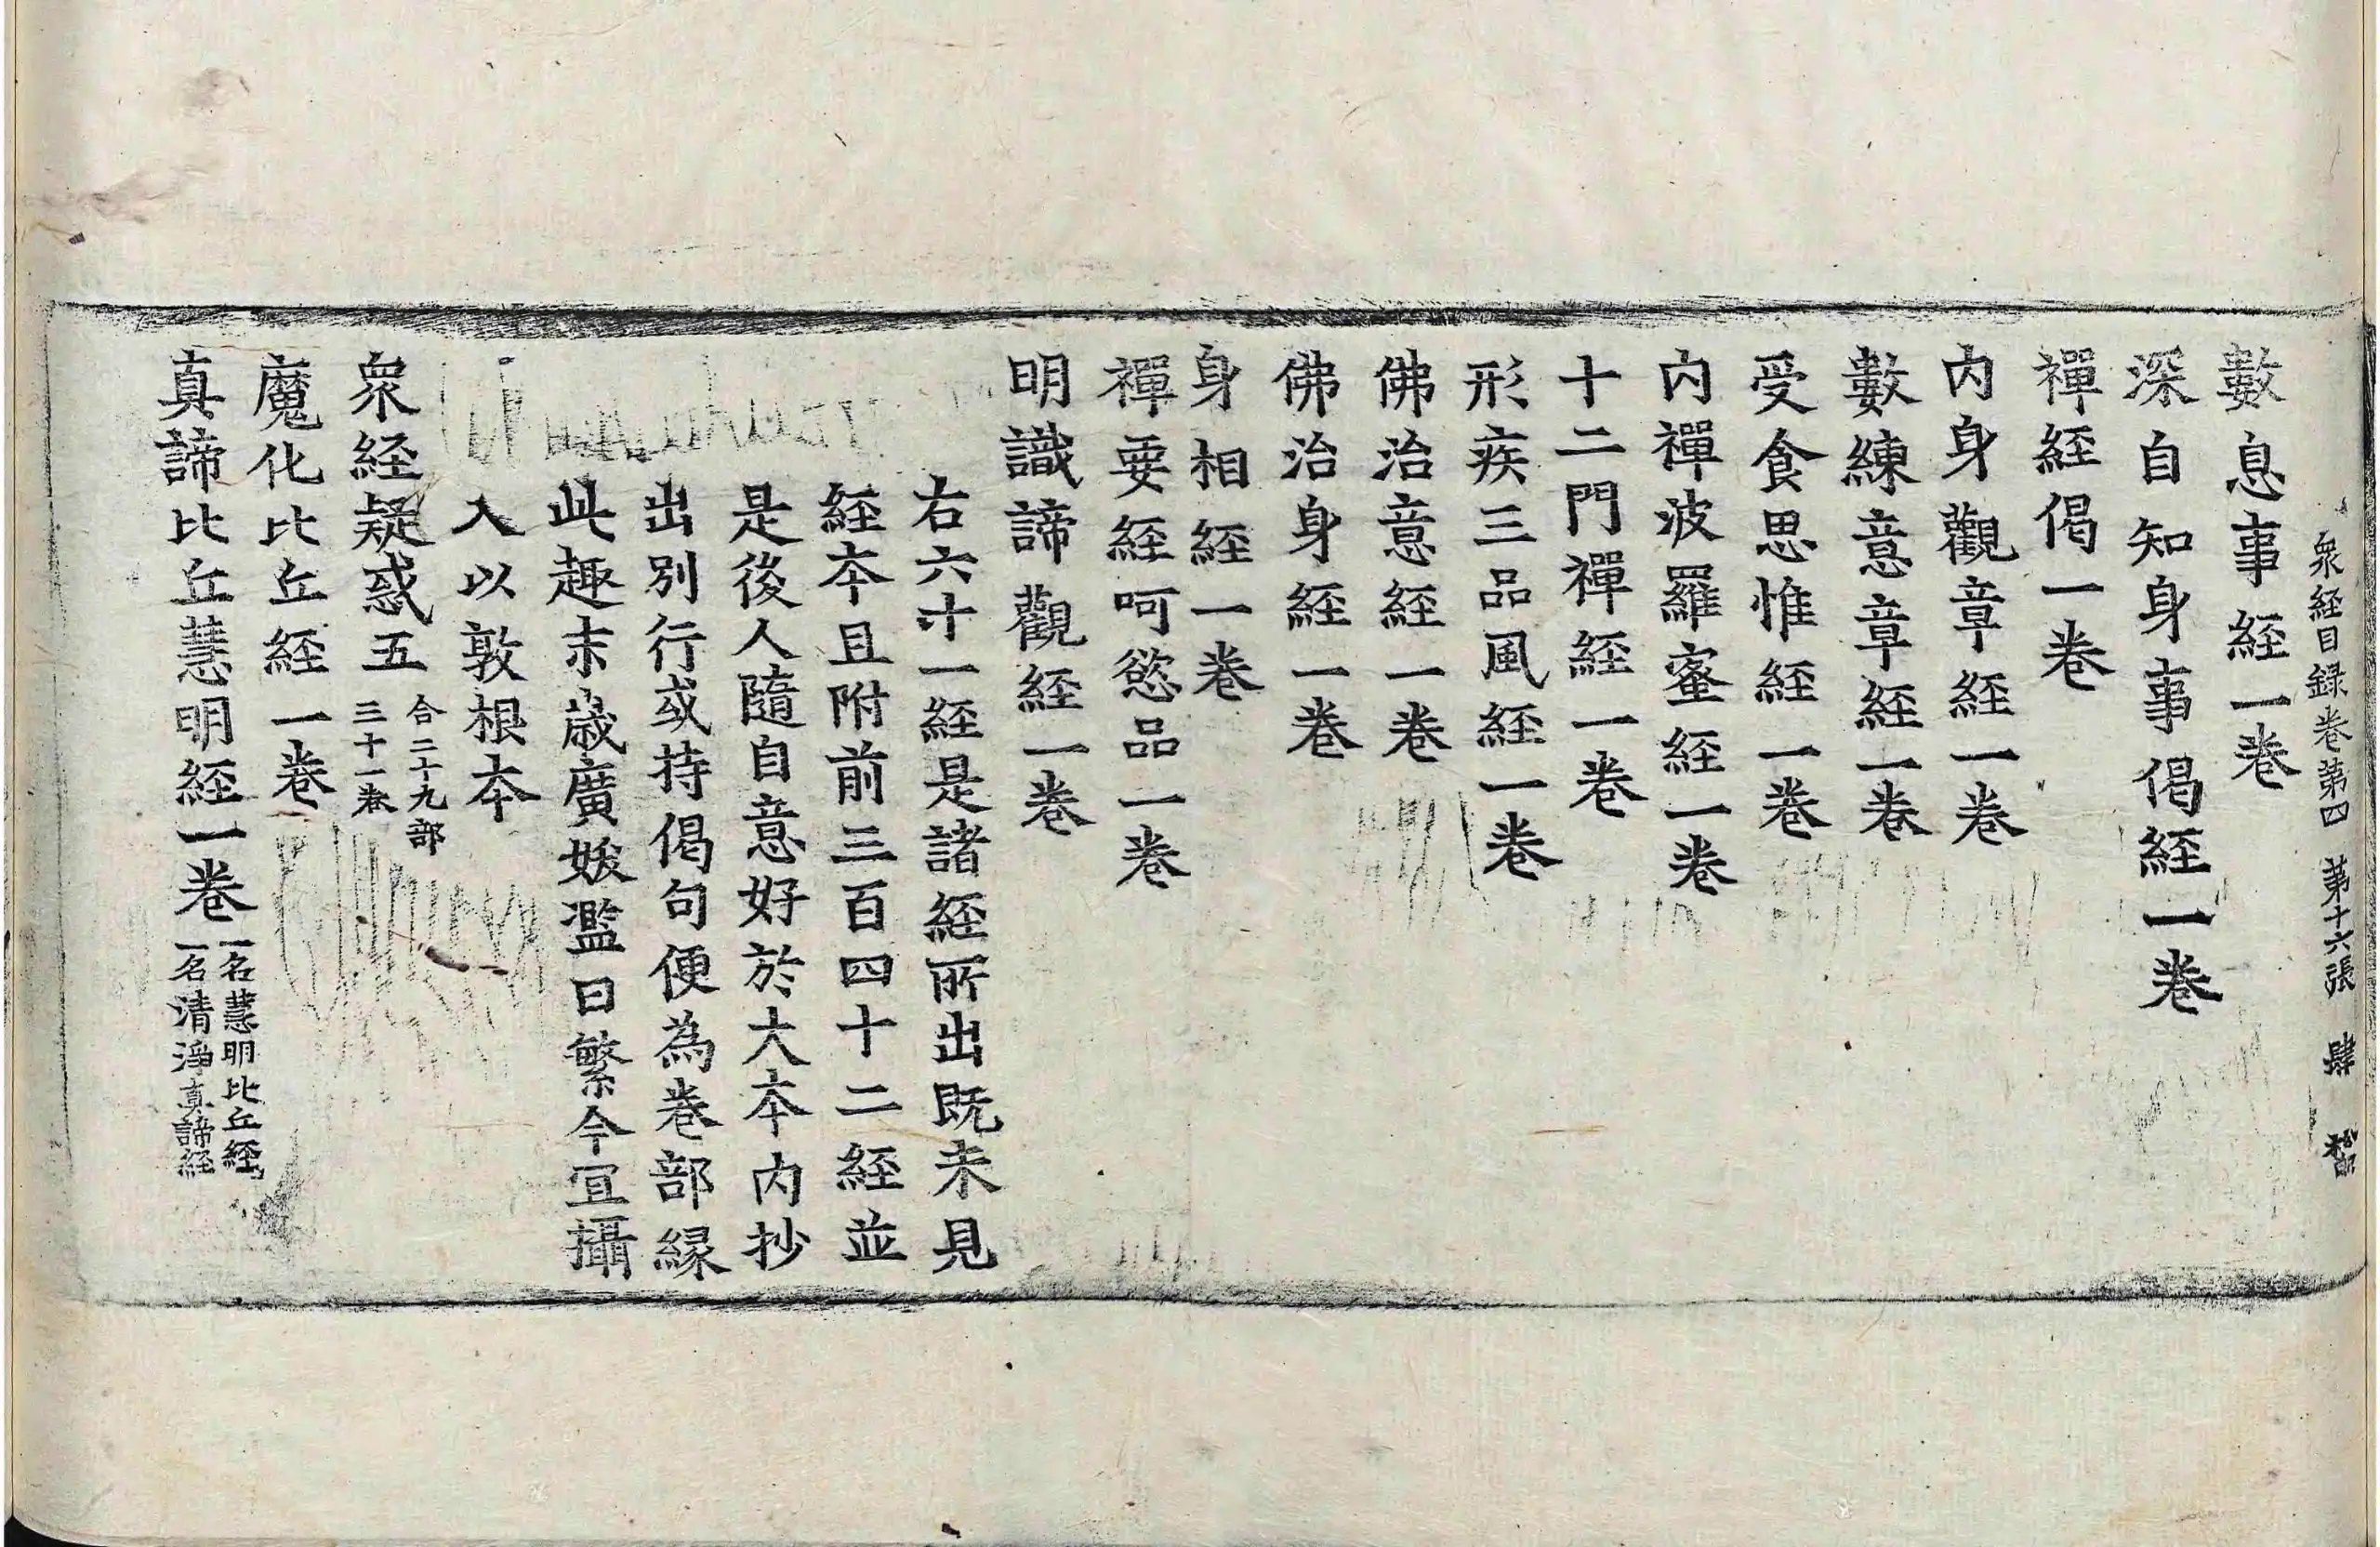 衆経目録卷第四 第十六張 肆
數息事経一卷
深自知身事偈経一卷
禪経偈一卷
内身觀章経一卷
數練意章経一卷
受食思惟経一卷
内禪波羅蜜経一卷
十二門禪経一卷
形疾三品風経一卷
佛治意経一卷
佛治身経一卷
身相経一卷
禪要経呵慾品一卷
明識諦觀経一卷
右六十一経是諸経所出既未見
経本且附前三百四十二経並
是後人隨自意好於大本内抄
出別行或持偈句便為卷部縁
此趣末歳廣妖濫日繁今宜攝
入以敦根本
衆経疑惑五 合二十九部
三十一卷
魔化比丘経一卷
真諦比丘慧明経一卷 一名慧明比丘経
一名清淨真諦経